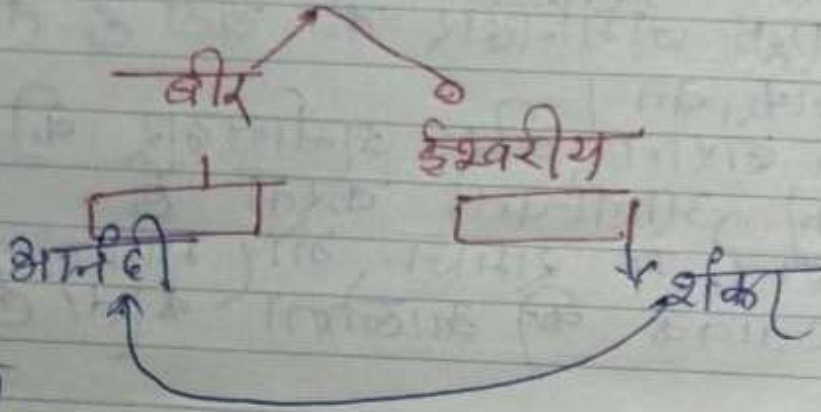 बीर
ईश्वरीय
आनंदी
शंका